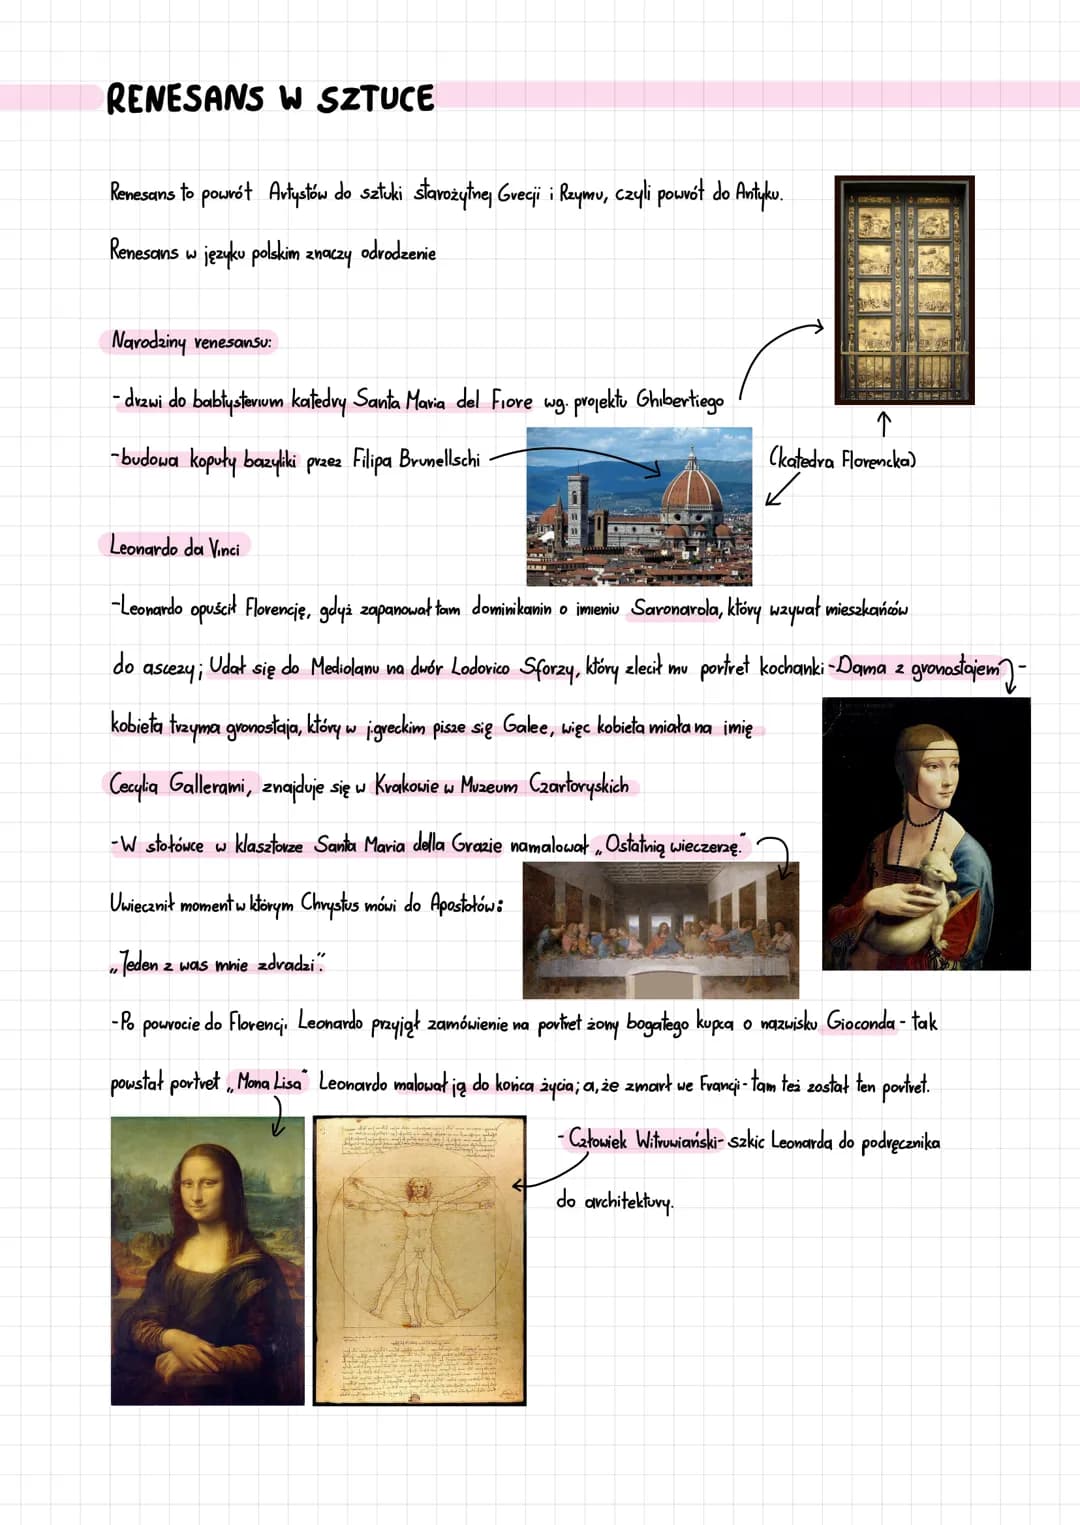 RENESANS W SZTUCE
Renesans to powrót Artystów do sztuki starożytnej Grecji i Rzymu, czyli powrót do Antyku.
Renesans w języku polskim znaczy odrodzenie
Narodziny renesansu:
- drzwi do babtysterium katedry Santa Maria del Fiore wg. projektu Ghibertiego
- budowa kopuły bazyliki przez Filipa Brunellschi
(katedra Florencka)
Leonardo da Vinci
-Leonardo opuścił Florencję, gdyż zapanował tam dominikanin o imieniu Savonarola, który wzywał mieszkańców
do ascezy; Udał się do Mediolanu na dwór Lodovico Sforzy, który zlecił mu portret kochanki -Dama z gronostajem -
kobieta trzyma gronostaja, który w j.greckim pisze się Galee, więc kobieta miała na imię
Cecylia Gallerami, znajduje się w Krakowie w Muzeum Czartoryskich
-W stołówce w klasztorze Santa Maria della Grazie namalował „Ostatnią wieczerzę."
Uwiecznił moment w którym Chrystus mówi do Apostołów:
„Jeden z was mnie zdradzi".
-Po powrocie do Florencji Leonardo przyjął zamówienie na portret żony bogatego kupca o nazwisku Gioconda - tak
powstał portret „Mona Lisa" Leonardo malował ją do końca życia; a, że zmarł we Francji - tam też został ten portret.
- Człowiek Witruwiański- szkic Leonarda do podręcznika
do architektury.